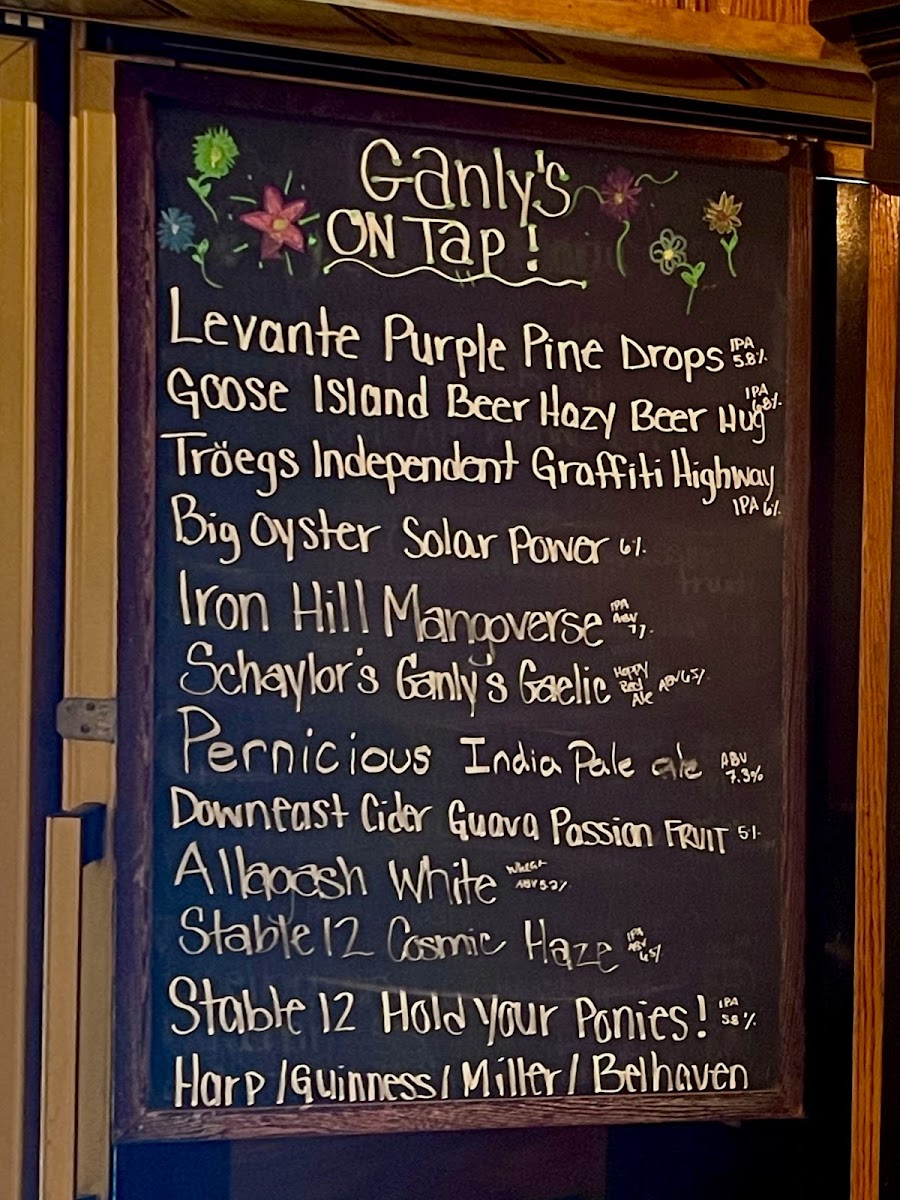 Ganly's
ON Tap!
Levante Purple Pine Drops IPA 5.8%
Goose Island Beer Hazy Beer Hug IPA 6.8%
Tröegs Independent Graffiti Highway
IPA 6%
Big Oyster Solar Power 6%
Iron Hill Mangoverse IPA ABV 7.7
Schaylor's Ganly's Gaelic Hoppy Red Ale ABV 6.5%
Pernicious India Pale ale ABV 7.3%
Downeast Cider Guava Passion FRUIT 5%
Allagash White Wheat ABV 5.2%
Stable 12 Cosmic Haze IPA ABV 6.5%
Stable 12 Hold Your Ponies! IPA 5.8%
Harp/Guinness/Miller/Belhaven